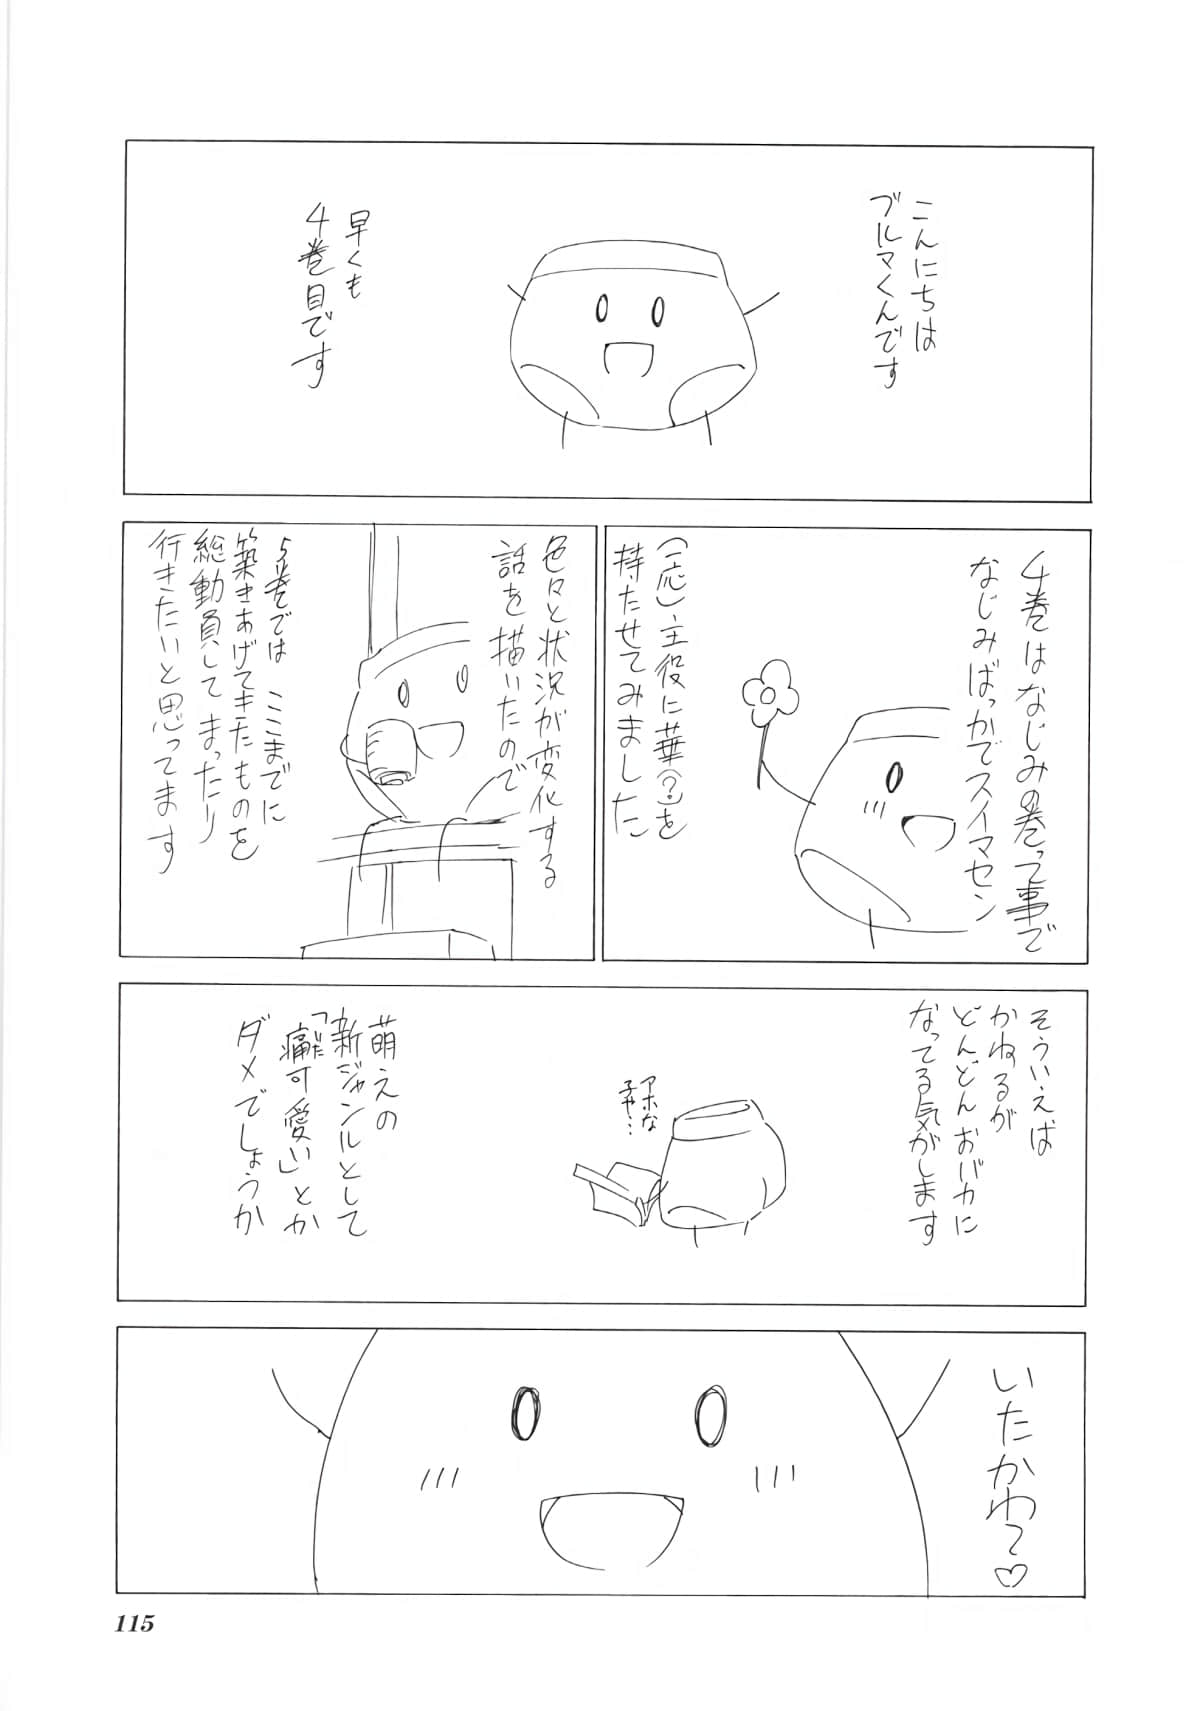 こんにちは
ブルマくんです
早くも
4巻目です
4巻はなじみの巻って事で
なじみばっかでスイマセン
(一応)主役に華(?)を
持たせてみました
色々と状況が変化する
話を描いたので
5巻では ここまでに
築きあげてきたものを
総動員して まったり
行きたいと思ってます
そういえば
かねるが
どんどんおバカに
なってる気がします
アホな
子や…
萌えの
新ジャンルとして
「痛可愛い」とか
いた
ダメでしょうか
いたかわて♡
115